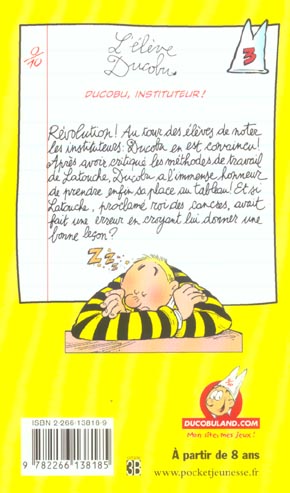 0/10
L'élève
Ducobu
3
DUCOBU, INSTITUTEUR !
Révolution ! Au tour des élèves de noter
les instituteurs : Ducobu en est convaincu !
Après avoir critiqué les méthodes de travail
de Latouche, Ducobu a l'immense honneur
de prendre enfin sa place au tableau ! Et si
Latouche, proclamé roi des cancres, avait
fait une erreur en croyant lui donner une
bonne leçon ?
ZZ
DUCOBULAND.COM
Mon site, mes jeux !
ISBN 2-266-13818-9
9 782266 138185
3B
À partir de 8 ans
www.pocketjeunesse.fr